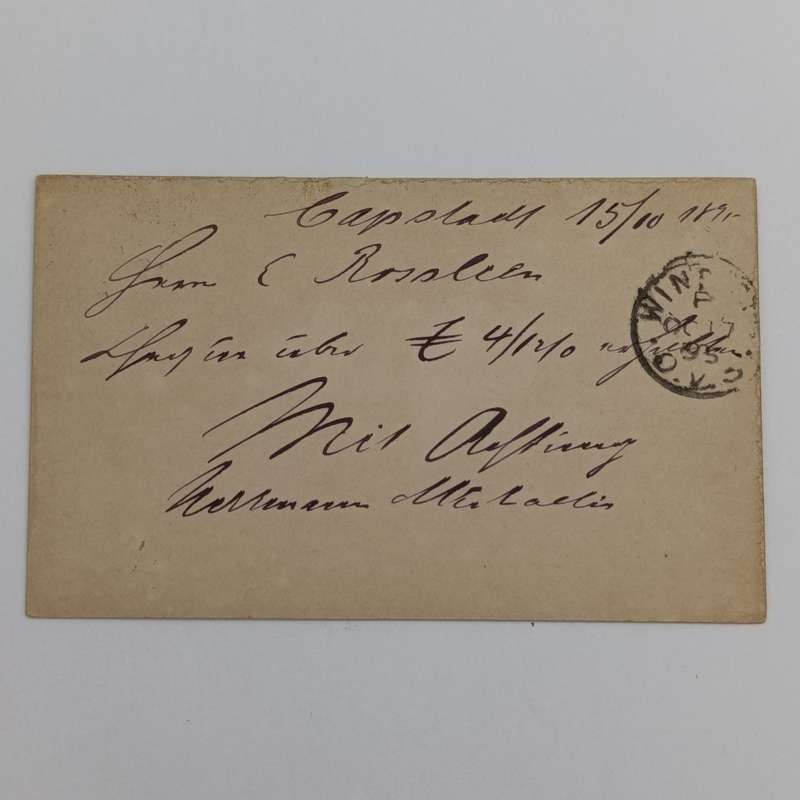 Capstadt 15/10 189
Herrn C Rossleen
über £ 4/12/0 erhalten.
Mit Achtung
Herrmann Michaelis
WIN
OC 17
95